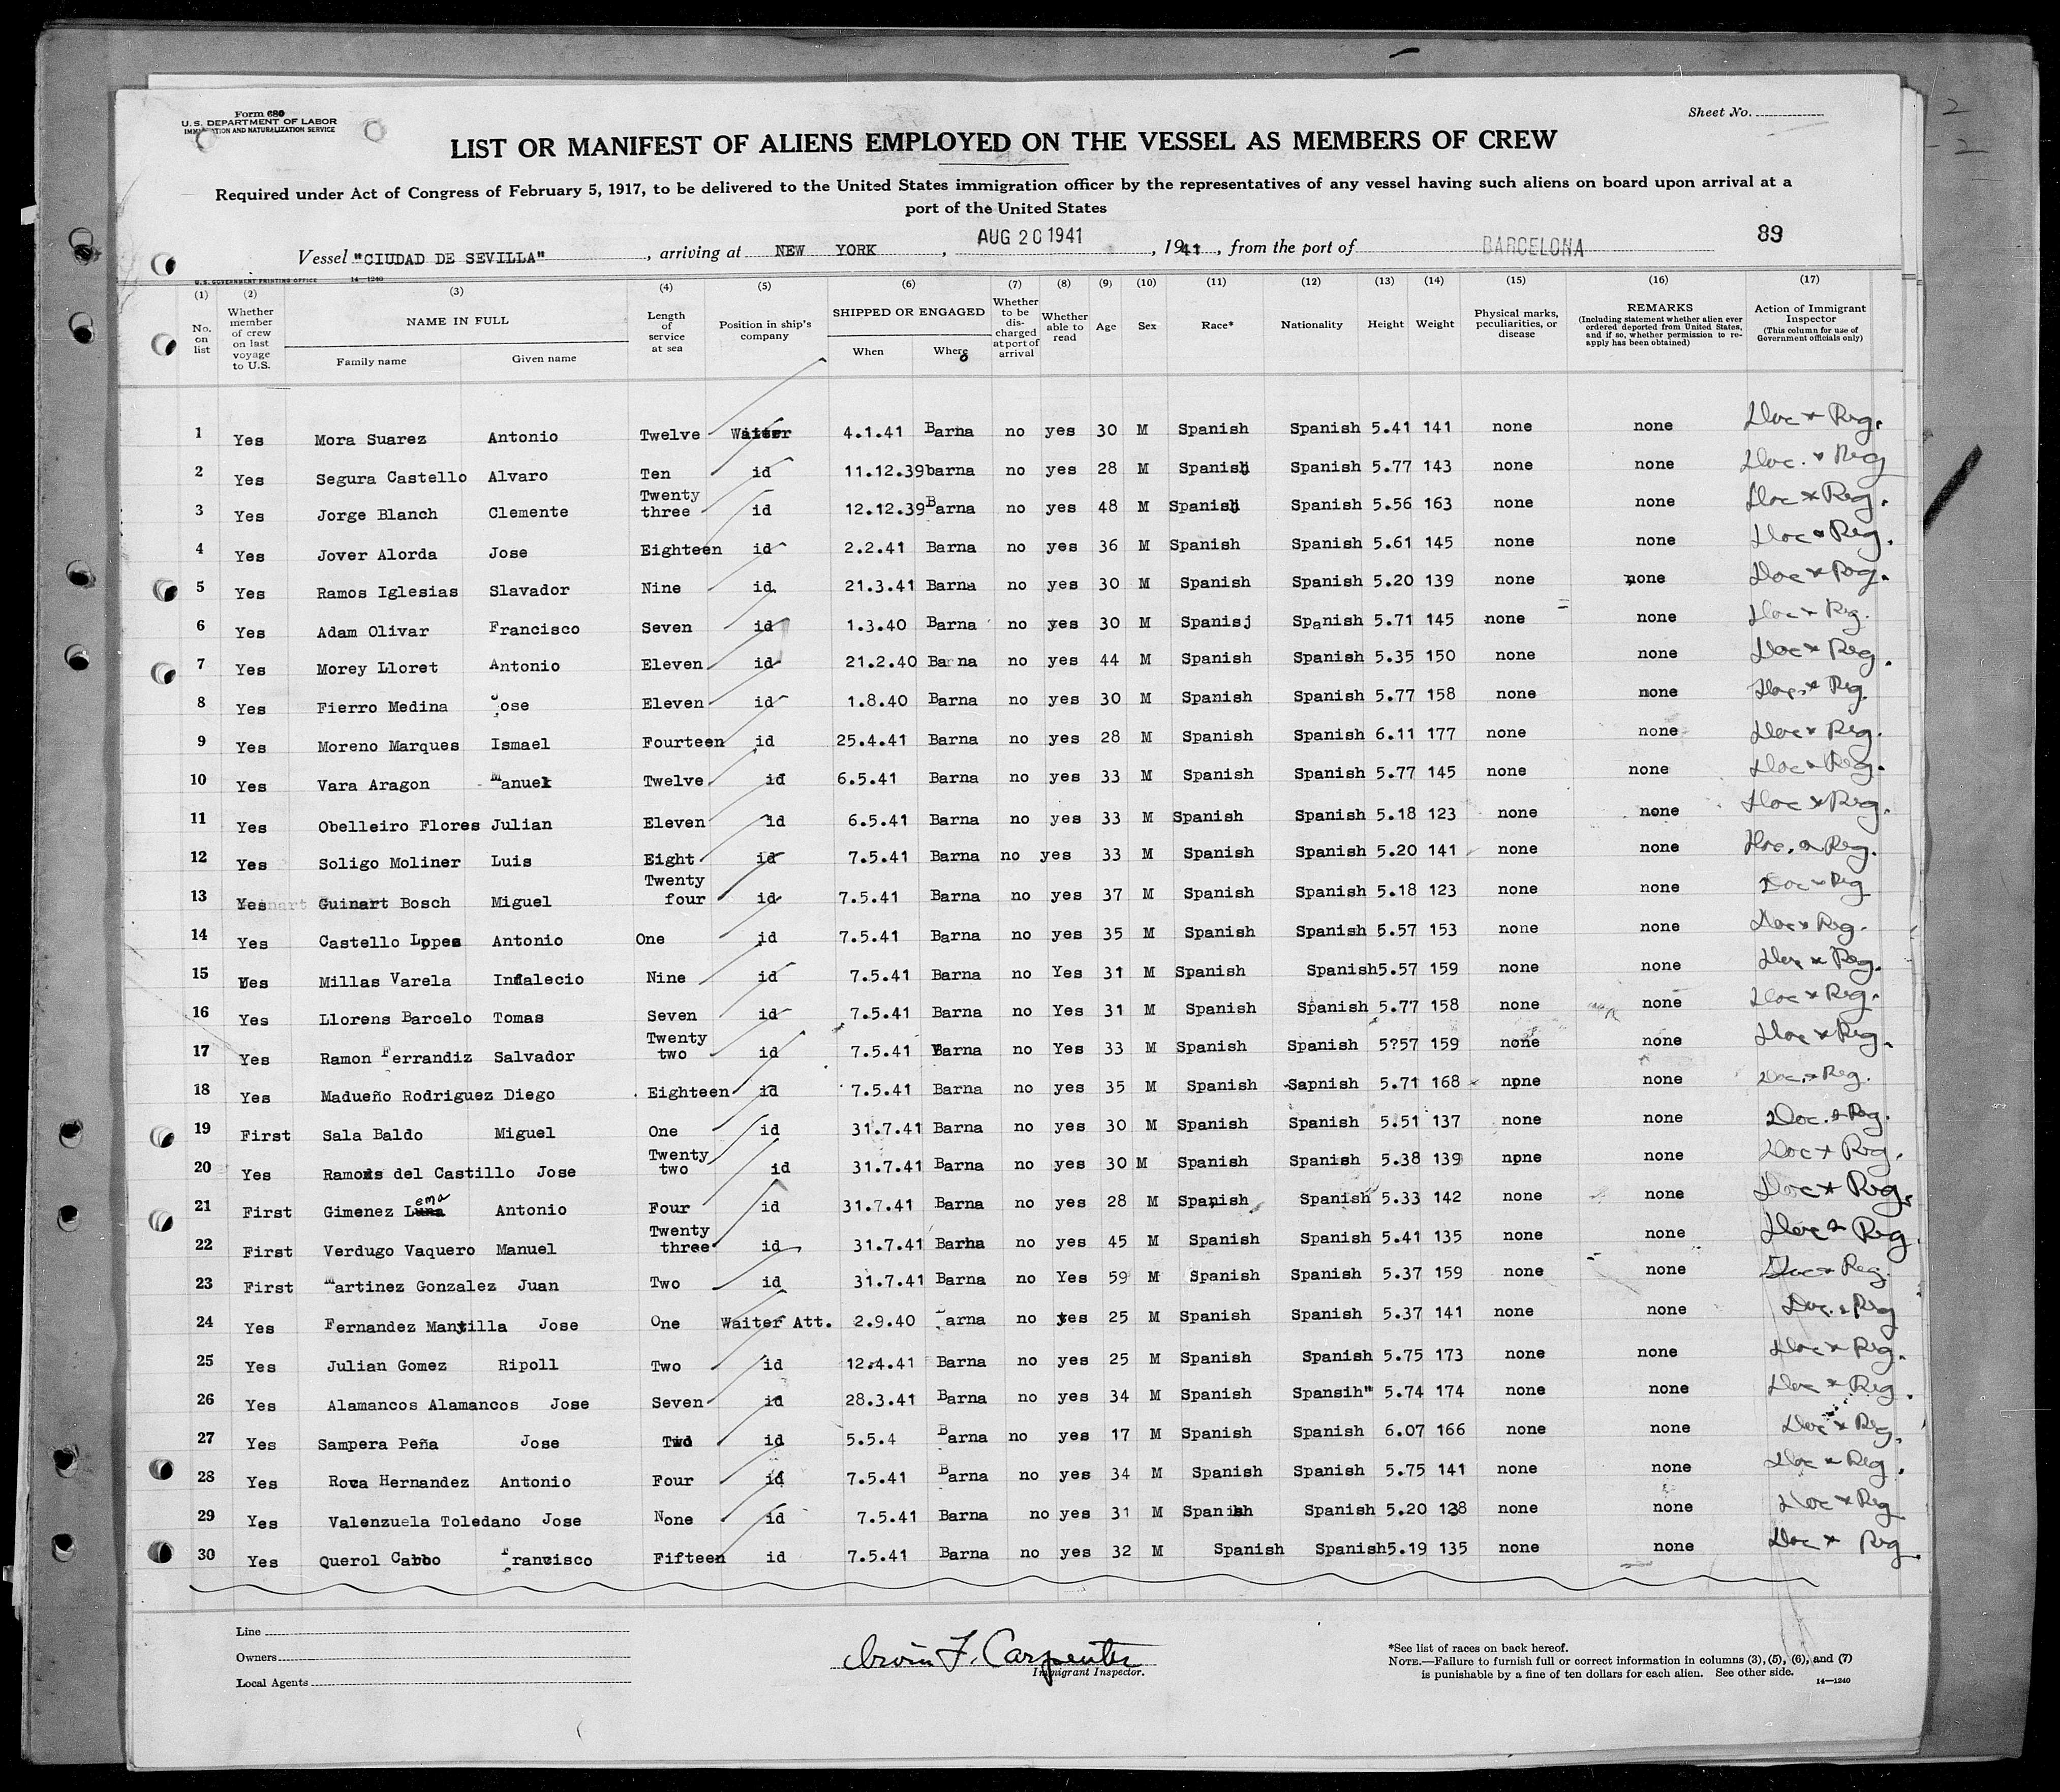 Form 680
U.S. DEPARTMENT OF LABOR
IMMIGRATION AND NATURALIZATION SERVICE
Sheet No.
2
2
LIST OR MANIFEST OF ALIENS EMPLOYED ON THE VESSEL AS MEMBERS OF CREW
Required under Act of Congress of February 5, 1917, to be delivered to the United States immigration officer by the representatives of any vessel having such aliens on board upon arrival at a
port of the United States
Vessel "CIUDAD DE SEVILLA", arriving at NEW YORK, AUG 20 1941, 1941, from the port of BARCELONA 89
U.S. GOVERNMENT PRINTING OFFICE 14—1240
(1) (2) (3) (4) (5) (6) (7) (8) (9) (10) (11) (12) (13) (14) (15) (16) (17)
No. on list
Whether member of crew on last voyage to U.S.
NAME IN FULL
Family name Given name
Length of service at sea
Position in ship's company
SHIPPED OR ENGAGED
When Where
Whether to be discharged at port of arrival
Whether able to read
Age
Sex
Race*
Nationality
Height
Weight
Physical marks, peculiarities, or disease
REMARKS
(Including statement whether alien ever ordered deported from United States, and if so, whether permission to reapply has been obtained)
Action of Immigrant Inspector
(This column for use of Government officials only)
1 Yes Mora Suarez Antonio Twelve Waiter 4.1.41 Barna no yes 30 M Spanish Spanish 5.41 141 none none Doc & Reg.
2 Yes Segura Castello Alvaro Ten id 11.12.39 barna no yes 28 M Spanish Spanish 5.77 143 none none Doc. & Reg
3 Yes Jorge Blanch Clemente Twenty three id 12.12.39 Barna no yes 48 M Spanish Spanish 5.56 163 none none Doc & Reg.
4 Yes Jover Alorda Jose Eighteen id 2.2.41 Barna no yes 36 M Spanish Spanish 5.61 145 none none Doc & Reg.
5 Yes Ramos Iglesias Slavador Nine id 21.3.41 Barna no yes 30 M Spanish Spanish 5.20 139 none none Doc & Reg.
6 Yes Adam Olivar Francisco Seven id 1.3.40 Barna no yes 30 M Spanisj Spanish 5.71 145 none none Doc & Reg.
7 Yes Morey Lloret Antonio Eleven id 21.2.40 Barna no yes 44 M Spanish Spanish 5.35 150 none none Doc & Reg.
8 Yes Fierro Medina Jose Eleven id 1.8.40 Barna no yes 30 M Spanish Spanish 5.77 158 none none Doc & Reg.
9 Yes Moreno Marques Ismael Fourteen id 25.4.41 Barna no yes 28 M Spanish Spanish 6.11 177 none none Doc & Reg.
10 Yes Vara Aragon Manuel Twelve id 6.5.41 Barna no yes 33 M Spanish Spanish 5.77 145 none none Doc & Reg.
11 Yes Obelleiro Flores Julian Eleven id 6.5.41 Barna no yes 33 M Spanish Spanish 5.18 123 none none Doc & Reg.
12 Yes Soligo Moliner Luis Eight id 7.5.41 Barna no yes 33 M Spanish Spanish 5.20 141 none none Doc. & Reg.
13 Yes Guinart Bosch Miguel Twenty four id 7.5.41 Barna no yes 37 M Spanish Spanish 5.18 123 none none Doc & Reg
14 Yes Castello Lopes Antonio One id 7.5.41 Barna no yes 35 M Spanish Spanish 5.57 153 none none Doc & Reg.
15 Yes Millas Varela Indalecio Nine id 7.5.41 Barna no Yes 31 M Spanish Spanish 5.57 159 none none Doc & Reg.
16 Yes Llorens Barcelo Tomas Seven id 7.5.41 Barna no Yes 31 M Spanish Spanish 5.77 158 none none Doc & Reg.
17 Yes Ramon Ferrandiz Salvador Twenty two id 7.5.41 Barna no Yes 33 M Spanish Spanish 5?57 159 none none Doc & Reg.
18 Yes Madueño Rodriguez Diego Eighteen id 7.5.41 Barna no yes 35 M Spanish Sapnish 5.71 168 npne none Doc. & Reg.
19 First Sala Baldo Miguel One id 31.7.41 Barna no yes 30 M Spanish Spanish 5.51 137 none none Doc. & Reg.
20 Yes Ramos del Castillo Jose Twenty two id 31.7.41 Barna no yes 30 M Spanish Spanish 5.38 139 npne none Doc & Reg.
21 First Gimenez Luna ema Antonio Four id 31.7.41 Barna no yes 28 M Spanish Spanish 5.33 142 none none Doc & Reg.
22 First Verdugo Vaquero Manuel Twenty three id 31.7.41 Barna no yes 45 M Spanish Spanish 5.41 135 none none Doc & Reg.
23 First Martinez Gonzalez Juan Two id 31.7.41 Barna no Yes 59 M Spanish Spanish 5.37 159 none none Doc & Reg.
24 Yes Fernandez Mantilla Jose One Waiter Att. 2.9.40 Barna no yes 25 M Spanish Spanish 5.37 141 none none Doc. & Reg
25 Yes Julian Gomez Ripoll Two id 12.4.41 Barna no yes 25 M Spanish Spanish 5.75 173 none none Doc & Reg.
26 Yes Alamancos Alamancos Jose Seven id 28.3.41 Barna no yes 34 M Spanish Spansih" 5.74 174 none none Doc & Reg.
27 Yes Sampera Peña Jose id 5.5.4 Barna no yes 17 M Spanish Spanish 6.07 166 none none Doc & Reg.
28 Yes Roca Hernandez Antonio Four id 7.5.41 Barna no yes 34 M Spanish Spanish 5.75 141 none none Doc & Reg.
29 Yes Valenzuela Toledano Jose None id 7.5.41 Barna no yes 31 M Spanish Spanish 5.20 128 none none Doc & Reg
30 Yes Querol Cabo Francisco Fifteen id 7.5.41 Barna no yes 32 M Spanish Spanish 5.19 135 none none Doc & Reg.
Line
Owners
Local Agents
Irvin F. Carpenter
Immigrant Inspector.
*See list of races on back hereof.
NOTE.—Failure to furnish full or correct information in columns (3), (5), (6), and (7)
is punishable by a fine of ten dollars for each alien. See other side.
14—1240